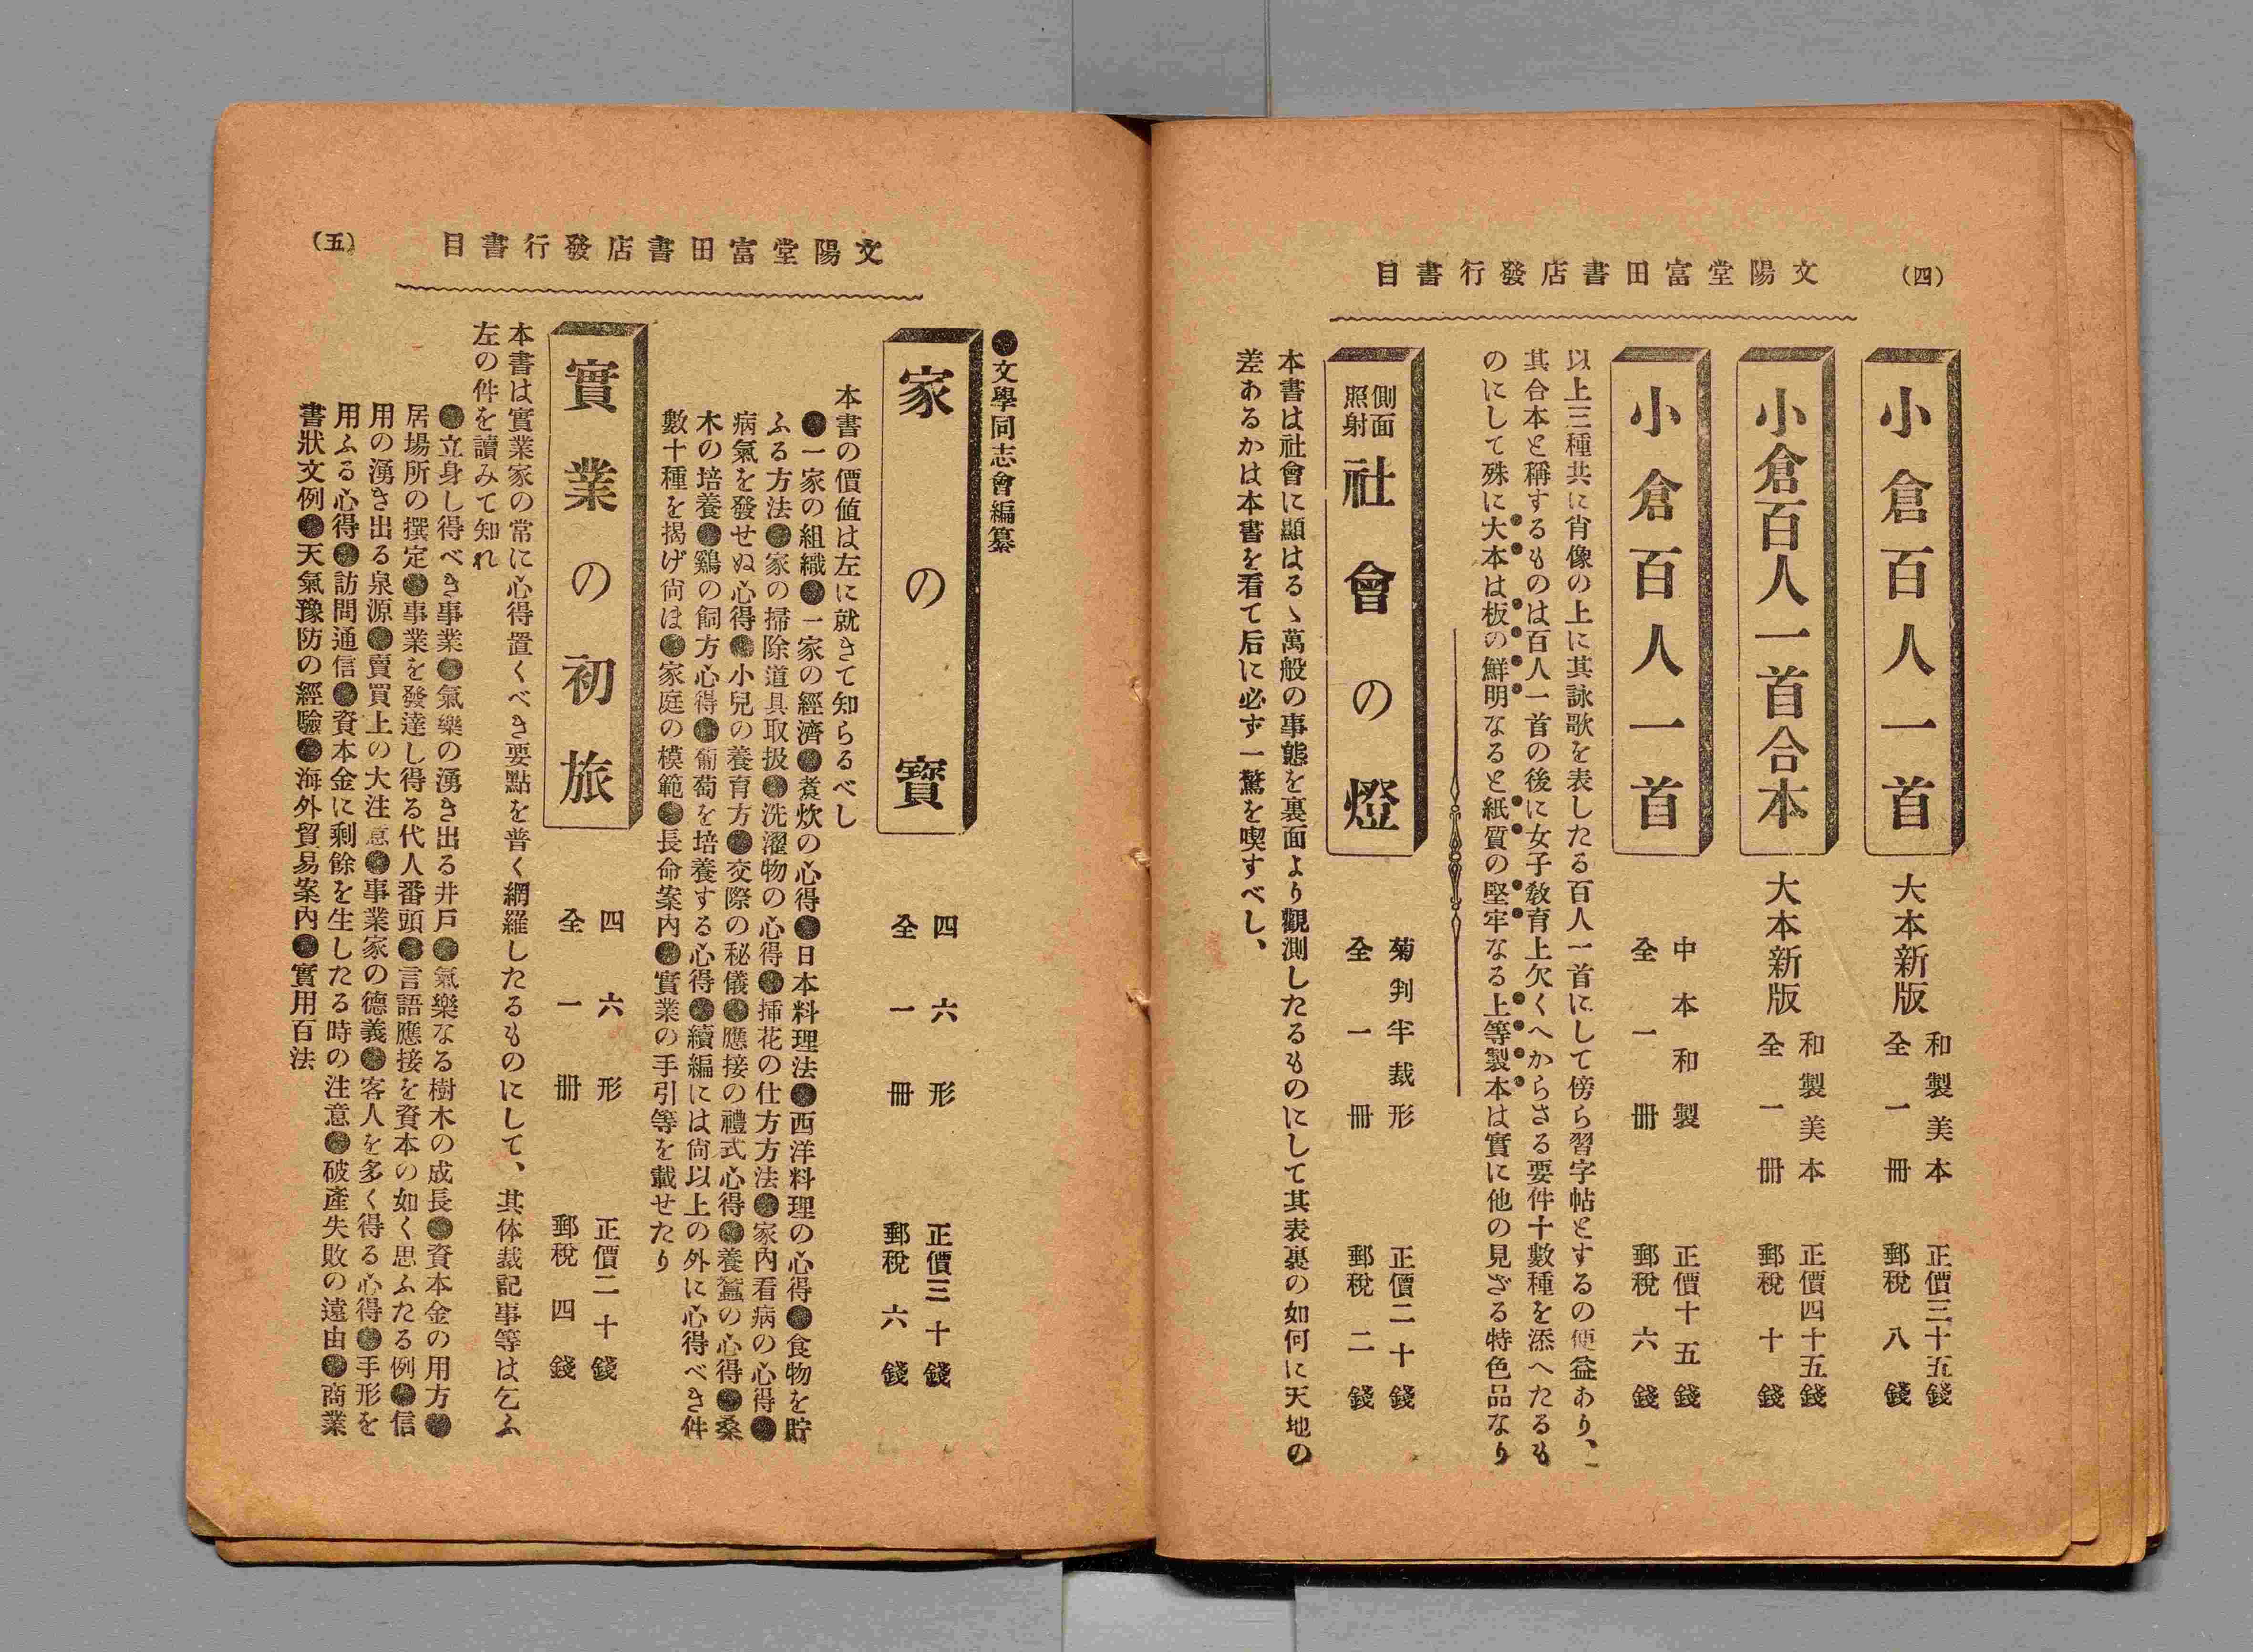 (四)
文陽堂富田書店發行書目
小倉百人一首
大本新版
和製美本
全一冊
正價三十五錢
郵稅八錢
小倉百人一首合本
大本新版
和製美本
全一冊
正價四十五錢
郵稅十錢
小倉百人一首
中本和製
全一冊
正價十五錢
郵稅六錢
以上三種共に肖像の上に其詠歌を表したる百人一首にして傍ら習字帖とするの便益あり、
其合本と稱するものは百人一首の後に女子敎育上欠くへからさる要件十數種を添へたるも
のにして殊に大本は板の鮮明なると紙質の堅牢なる上等製本は實に他の見ざる特色品なり
側面照射
社會の燈
菊判半裁形
全一冊
正價二十錢
郵稅二錢
本書は社會に顯はるゝ萬般の事態を裏面より觀測したるものにして其表裏の如何に天地の
差あるかは本書を看て后に必ず一驚を喫すべし、
文陽堂富田書店發行書目
(五)
●文學同志會編纂
家の寶
四六形
全一冊
正價三十錢
郵稅六錢
本書の價値は左に就きて知らるべし
●一家の組織●一家の經濟●煑炊の心得●日本料理法●西洋料理の心得●食物を貯
ふる方法●家の掃除道具取扱●洗濯物の心得●揷花の仕方方法●家內看病の心得●
病氣を發せぬ心得●小兒の養育方●交際の秘儀●應接の禮式心得●養蠶の心得●桑
木の培養●鷄の飼方心得●葡萄を培養する心得●續編には尙以上の外に心得べき件
數十種を揭げ尙は●家庭の模範●長命案內●實業の手引等を載せたり
實業の初旅
四六形
全一冊
正價二十錢
郵稅四錢
本書は實業家の常に心得置くべき要點を普く網羅したるものにして、其体裁記事等は乞ふ
左の件を讀みて知れ
●立身し得べき事業●氣樂の湧き出る井戶●氣樂なる樹木の成長●資本金の用方●
居場所の撰定●事業を發達し得る代人番頭●言語應接を資本の如く思ふたる例●信
用の湧き出る泉源●賣買上の大注意●事業家の德義●客人を多く得る心得●手形を
用ふる心得●訪問通信●資本金に剩餘を生したる時の注意●破產失敗の遠由●商業
書狀文例●天氣豫防の經驗●海外貿易案內●實用百法